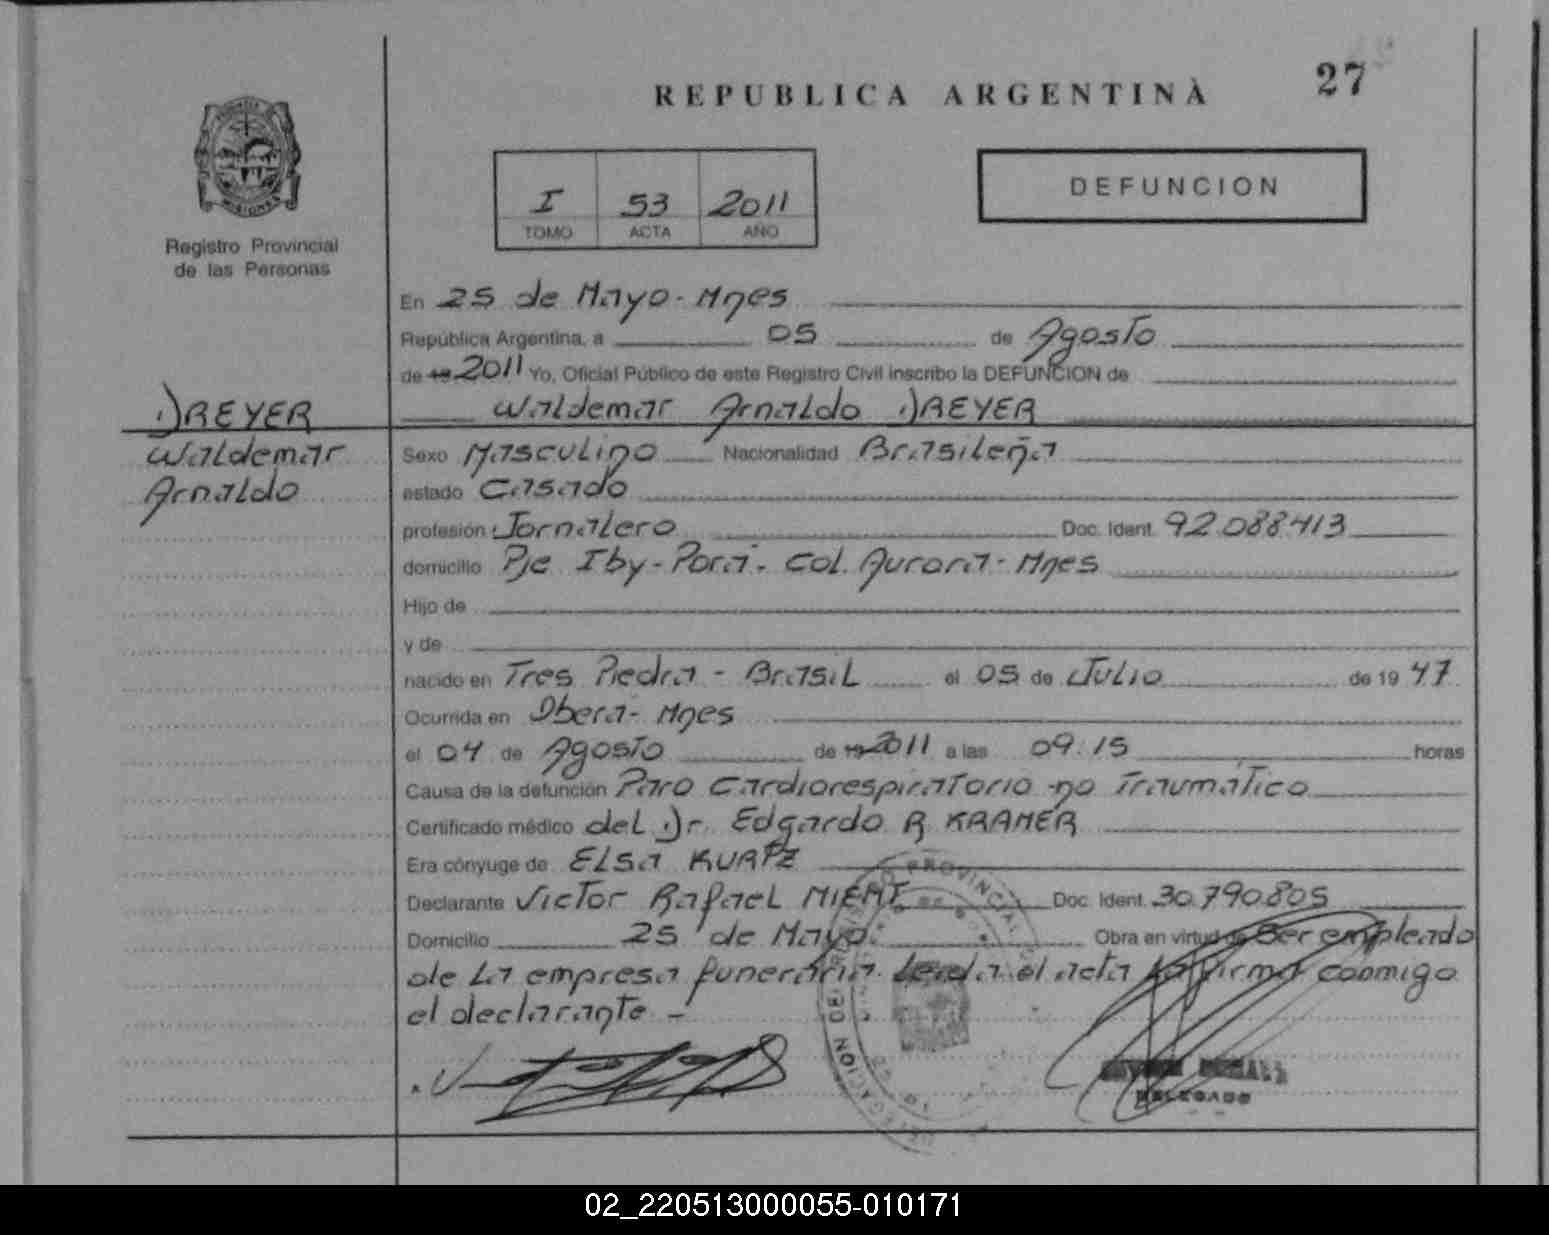 27
REPUBLICA ARGENTINA
I 53 2011
TOMO ACTA AÑO
DEFUNCION
MISIONES
Registro Provincial
de las Personas
En 25 de Mayo - Mnes
República Argentina, a 05 de Agosto
de 19 2011 Yo, Oficial Público de este Registro Civil inscribo la DEFUNCION de
DREYER
Waldemar Arnaldo DREYER
Waldemar
Arnaldo
Sexo Masculino Nacionalidad Brasileña
estado Casado
profesión Jornalero Doc. Ident. 92.088.413
domicilio Pje Iby-Porá - Col. Aurora - Mnes
Hijo de
y de
nacido en Tres Piedra - Brasil el 05 de Julio de 19 47
Ocurrida en Oberá - Mnes
el 04 de Agosto de 19 2011 a las 09:15 horas
Causa de la defunción Paro Cardiorespiratorio no Traumático
Certificado médico del Dr. Edgardo R KRAMER
Era cónyuge de Elsa KURTZ
Declarante Victor Rafael MIENT Doc. Ident. 30.790.805
Domicilio 25 de Mayo. Obra en virtud de Ser empleado
de La empresa funeraria. Leida el acta la firma conmigo
el declarante -
DELEGADO
02_220513000055-010171